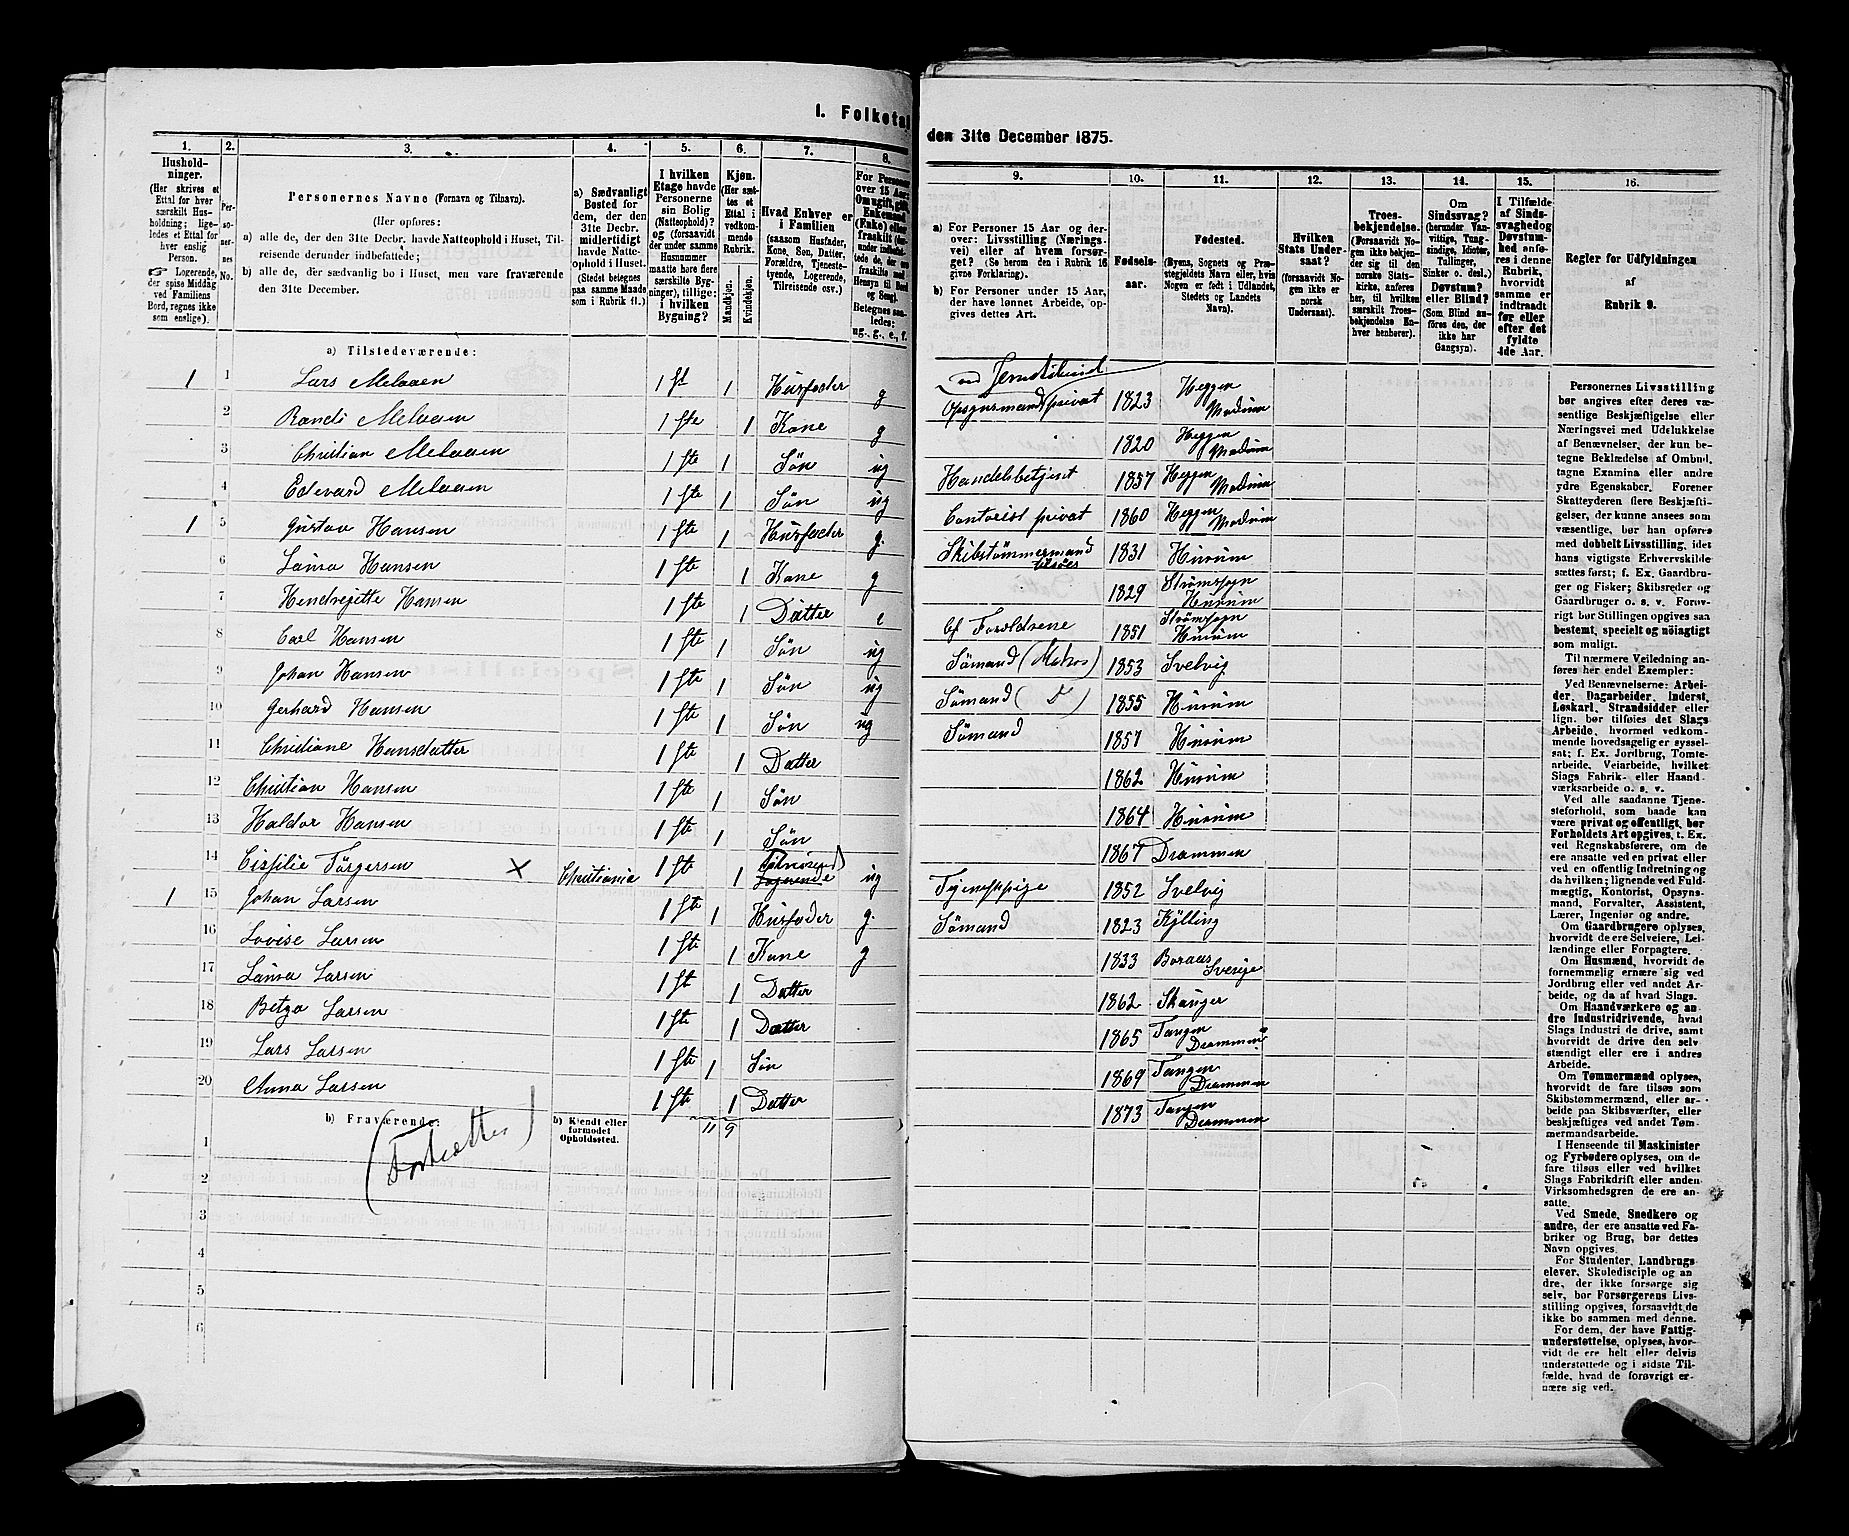 I. Folketal
den 31te December 1875.
1. 2. 3. 4. 5. 6. 7. 8. 9. 10. 11. 12. 13. 14. 15. 16.
Hushold-
ninger.
(Her skrives et
Ettal for hver
særskilt Hus-
holdning; lige-
ledes et Ettal for
hver enslig
Person.
☞ Logerende,
der spise Middag
ved Familiens
Bord, regnes ikke
som enslige).
Per-
so-
ner-
nes
No.
Personernes Navne (Fornavn og Tilnavn).
(Her opføres:
a) alle de, der den 31te Decbr. havde Natteophold i Huset, Til-
reisende derunder indbefattede;
b) alle de, der sædvanlig bo i Huset, men vare fraværende
den 31te December.
a) Sædvanligt
Bosted for
dem, der den
31te Decbr.
midlertidigt
havde Natte-
ophold i Huset.
(Stedet betegnes
paa samme Maade
som i Rubrik 11.)
I hvilken
Etage havde
Personerne
sin Bolig
(Natteophold)?
og (forsaavidt
der under samme
Husnummer
maatte høre flere
særskilte Byg-
ninger), tillige:
i hvilken
Bygning?
Kjøn.
(Her sæt-
tes et
Ettal i
vedkom-
mende
Rubrik.
Mandkjøn.
Kvindekjøn.
Hvad Enhver er
i Familien
(saasom Husfader,
Kone, Søn, Datter,
Forældre, Tjeneste-
tyende, Logerende,
Tilreisende osv.)
For Personer
over 15 Aar:
Om ugift, gift,
Enkemand
(Enke) eller
fraskilt
Betegnes saa-
ledes:
ug., g., e., f.
a) For Personer 15 Aar og der-
over: Livsstilling (Nærings-
vei) eller af hvem forsør-
get? (Se herom den i Rubrik 16
givne Forklaring).
b) For Personer under 15 Aar,
der have lønnet Arbeide, op-
gives dettes Art.
Fødsels-
aar.
Fødested.
(Byens, Sognets og Præ-
stegjeldets Navn eller, hvis
Nogen er født i Udlandet,
Stedets og Landets
Navn).
Hvilken
Stats Under-
saat?
(forsaavidt No-
gen ikke er
norsk
Undersaat).
Troes-
bekjendelse.
(Forsaavidt No-
gen ikke bekjen-
der sig til den
norske Stats-
kirke, anføres
her, til hvilken
særskilt Troes-
bekjendelse En-
hver henhører).
Om
Sindssvag?
(herunder Van-
vittige, Tung-
sindige, Idioter,
Tallinger,
Sinker o. desl.)
Døvstum?
eller Blind?
(Som Blind an-
føres den, der
ikke har
Gangsyn).
I Tilfælde
af Sinds-
svaghed og
Døvstum-
hed anfø-
res i denne
Rubrik,
hvorvidt
samme er
indtraadt
før eller
efter det
fyldte
4de Aar.
Regler for Udfyldningen
af
Rubrik 9.
a) Tilstedeværende:
1 1 Lars Melaaen 1 St 1 Husfader g Opsynsmand privat 1823 Heggen Modum
ved Jernstøberi
2 Randi Melaaen 1 Ste 1 Kone g 1820 Heggen Modum
3 Christian Melaaen 1 Ste 1 Søn ug Handelsbetjent 1857 Heggen Modum
4 Edevard Melaaen 1 Ste 1 Søn ug Contorist privat 1860 Heggen Modum
1 5 Gustav Hansen 1 Ste 1 Husfader g. Skibstømmermand tilsøes 1831 Hurum
6 Laura Hansen 1 Ste 1 Kone g 1829 Strømsogn Hurum
7 Hendrejette Hansen 1 Ste 1 Datter e af Forældrene 1851 Strømsogn Hurum
8 Carl Hansen 1 Ste 1 Søn ug Sømand (Matros) 1853 Svelvig
9 Johan Hansen 1 Ste 1 Søn ug Sømand ( D ) 1855 Hurum
10 Gerhard Hansen 1 Ste 1 Søn ug Sømand 1857 Hurum
11 Christiane Hansdatter 1 Ste 1 Datter 1862 Hurum
12 Christian Hansen 1 Ste 1 Søn 1864 Hurum
13 Haldor Hansen 1 Ste 1 Søn 1867 Drammen
14 Cicilie Törgersen × Christiania 1 Ste 1 Logerende ug Tjenestpige 1852 Svelvig
1 15 Johan Larsen 1 Ste 1 Husfader g. Sømand 1823 Kjølling
16 Lovise Larsen 1 Ste 1 Kone g 1833 Boraas Sverige
17 Laura Larsen 1 St 1 Datter 1862 Skauger
18 Betzo Larsen 1 Ste 1 Datter 1865 Tangen Drammen
19 Lars Larsen 1 Ste 1 Søn 1869 Tangen Drammen
20 Anna Larsen 1 Ste 1 Datter 1873 Tangen Drammen
11 9
b) Fraværende:
b) Kjendt eller
formodet
Opholdssted.
(Fortsættes)
1
2
3
4
5
6
Personernes Livsstilling
bør angives efter deres væ-
sentlige Beskjæftigelse eller
Næringsvei med Udelukkelse
af Benævnelser, der kun be-
tegne Beklædelse af Ombud,
tagne Examina eller andre
ydre Egenskaber. Forener
Skatteyderen flere Beskjæfti-
gelser, der kunne ansees som
væsentlige, bør han opføres
med dobbelt Livsstilling, idet
hans vigtigste Erhvervskilde
sættes først; f. Ex. Gaardbru-
ger og Fisker; Skibsreder og
Gaardbruger o. s. v. Forøv-
rigt bør Stillingen opgives saa
bestemt, specielt og nöiagtigt
som muligt.
Til nærmere Veiledning an-
føres her endel Exempler:
Ved Benævnelserne: Arbei-
der, Dagarbeider, Inderst,
Løskarl, Strandsidder eller
lign. bør tilføies det Slags
Arbeide, hvormed vedkom-
mende hovedsagelig er syssel-
sat; f. Ex. Jordbrug, Tomte-
arbeide, Veiarbeide, hvilket
Slags Fabrik- eller Haand-
værksarbeide o. s. v.
Ved alle saadanne Tjene-
steforhold, som baade kan
være privat og offentligt, bør
Forholdets Art opgives, t. Ex.
ved Regnskabsførere, om de
ere ansatte ved en privat eller
ved en offentlig Indretning og
da hvilken; lignende ved Fuld-
mægtig, Kontorist, Opsyns-
mand, Forvalter, Assistent,
Lærer, Ingeniør og andre.
Om Gaardbrugere oplyses,
hvorvidt de ere Selveiere, Lei-
lændinge eller Forpagtere.
Om Husmænd, hvorvidt de
fornemmelig ernære sig ved
Jordbrug eller ved andet Ar-
beide, og da af hvad Slags.
Om Haandværkere og an-
dre Industridrivende, hvad
Slags Industri de drive, samt
hvorvidt de drive den selv-
stændigt eller ere i andres
Arbeide.
Om Tømmermænd oplyses,
hvorvidt de fare tilsøs som
Skibstømmermænd, eller ar-
beide paa Skibsværfter, eller
beskjæftiges ved andet Tøm-
mermandsarbeide.
I Henseende til Maskinister
og Fyrbødere oplyses, om de
fare tilsøs eller ved hvilket
Slags Fabrikdrift eller anden
Virksomhedsgren de ere an-
satte.
Ved Smede, Snedkere og
andre, der ere ansatte ved Fa-
briker og Brug, bør dettes
Navn opgives.
For Studenter, Landbrugs-
elever, Skoledisciple og an
dre, der ikke forsørge sig
selv, bør Forsørgerens Livs-
stilling opgives, forsaavidt de
ikke bo sammen med denne.
For dem, der have Fattig-
understøttelse, oplyses, hvor-
vidt de ere helt eller delvis
understøttede og i sidste Til-
fælde, hvad de forøvrigt er-
nære sig ved.